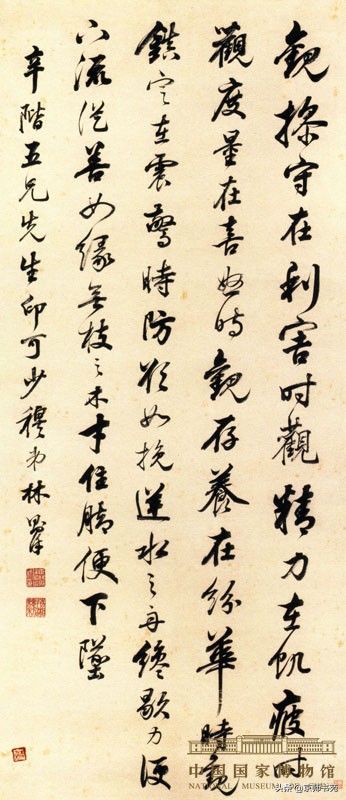 觀操守在利害时觀精力在飢疲时
觀度量在喜怒时觀存養在紛華時觀
鎮定在震驚時防欲如挽逆水之舟纔歇力便
下流從善如緣無枝之木才住腳便下墜
辛階五兄先生印可少穆弟林則徐
中国国家博物馆
NATIONAL MUSEUM OF CHINA
头条 @京师书苑